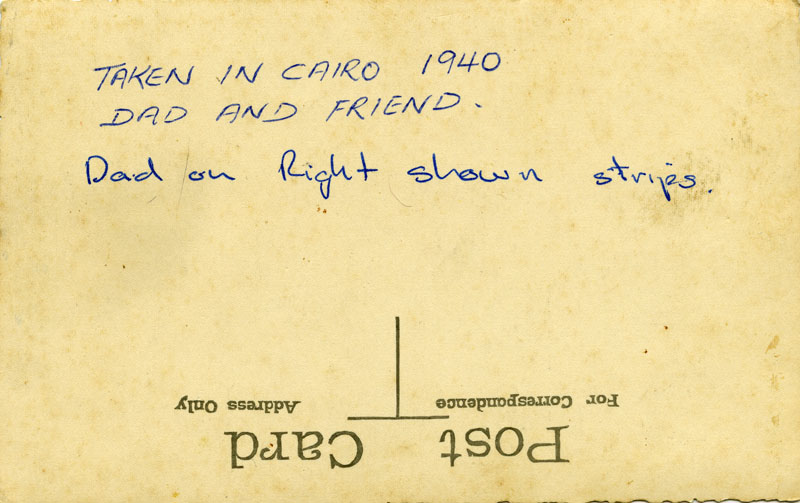 TAKEN IN CAIRO 1940
DAD AND FRIEND.
Dad on Right shown strips.
Post Card
For Correspondence
Address Only